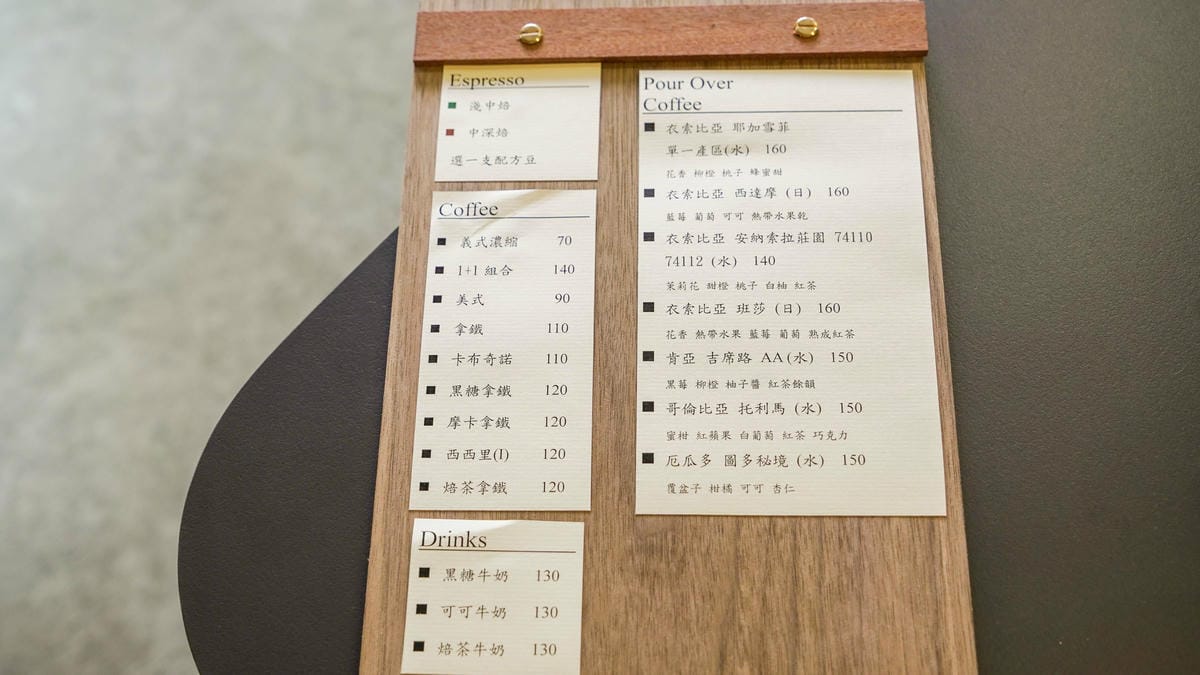 Espresso
淺中焙
中深焙
選一支配方豆
Coffee
義式濃縮 70
1+1 組合 140
美式 90
拿鐵 110
卡布奇諾 110
黑糖拿鐵 120
摩卡拿鐵 120
西西里(I) 120
焙茶拿鐵 120
Drinks
黑糖牛奶 130
可可牛奶 130
焙茶牛奶 130
Pour Over
Coffee
衣索比亞 耶加雪菲
單一產區(水) 160
花香 柳橙 桃子 蜂蜜甜
衣索比亞 西達摩 (日) 160
藍莓 葡萄 可可 熱帶水果乾
衣索比亞 安納索拉莊園 74110
74112 (水) 140
茉莉花 甜橙 桃子 白柚 紅茶
衣索比亞 班莎 (日) 160
花香 熱帶水果 藍莓 葡萄 熟成紅茶
肯亞 吉席路 AA (水) 150
黑莓 柳橙 柚子醬 紅茶餘韻
哥倫比亞 托利馬 (水) 150
蜜柑 紅蘋果 白葡萄 紅茶 巧克力
厄瓜多 圖多秘境 (水) 150
覆盆子 柑橘 可可 杏仁